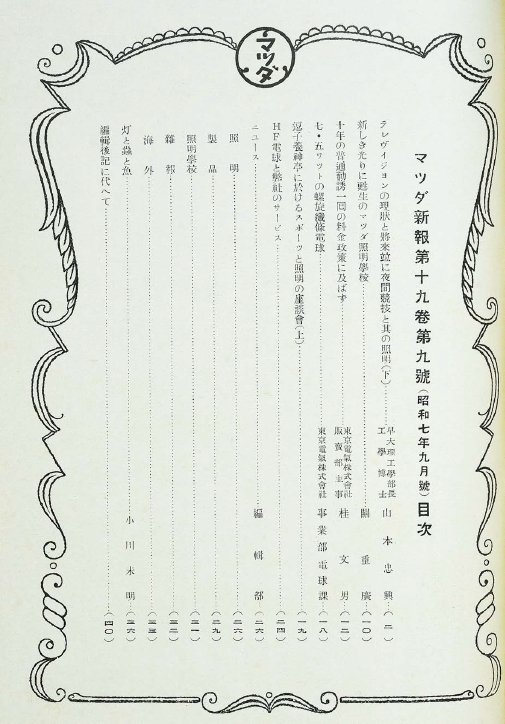 マツダ
マツダ新報第十九卷第九號(昭和七年九月號)目次
テレヴイジヨンの現狀と將來竝に夜間競技と其の照明(下)……早大理工學部長 工學博士 山本忠興…(二)
新しき光りに甦生のマツダ照明學校……關重廣…(一〇)
十年の普通勸誘一回の料金政策に及ばず……東京電氣株式會社 販賣部主事 桂文男…(一二)
七・五ワツトの螺旋纖條電球……東京電氣株式會社 事業部電球課…(一八)
逗子養神亭に於けるスポーツと照明の座談會(上)……(一九)
HF電球と弊社のサービス……(二四)
ニユース……編輯部…(二六)
照明……(二六)
製品……(二九)
照明學校……(三一)
雜報……(三二)
海外……(三三)
灯と蟲と魚……小川未明…(三六)
編輯後記に代へて……(四〇)